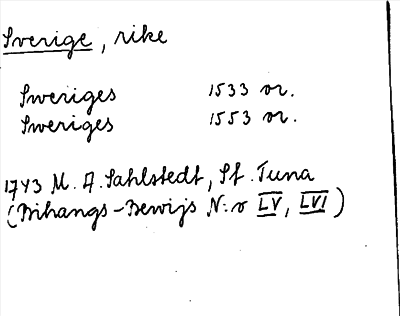 Sverige, rike
Sweriges 1533 or.
Sweriges 1553 or.
1743 M. A. Sahlstedt, St. Tuna
(Bihangs-Bewijs N:o LV, LVI)